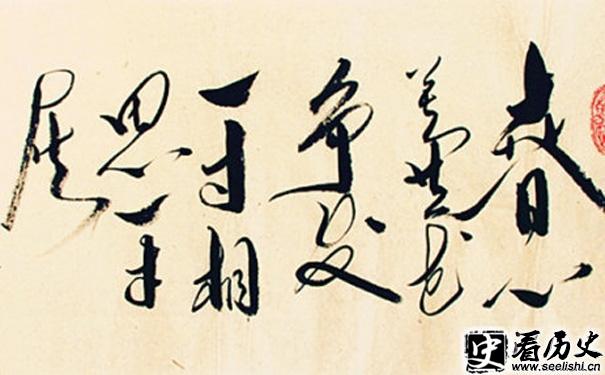 春心
莫共花
争发
一寸相
思一寸
灰
史 看历史
www.seelishi.cn